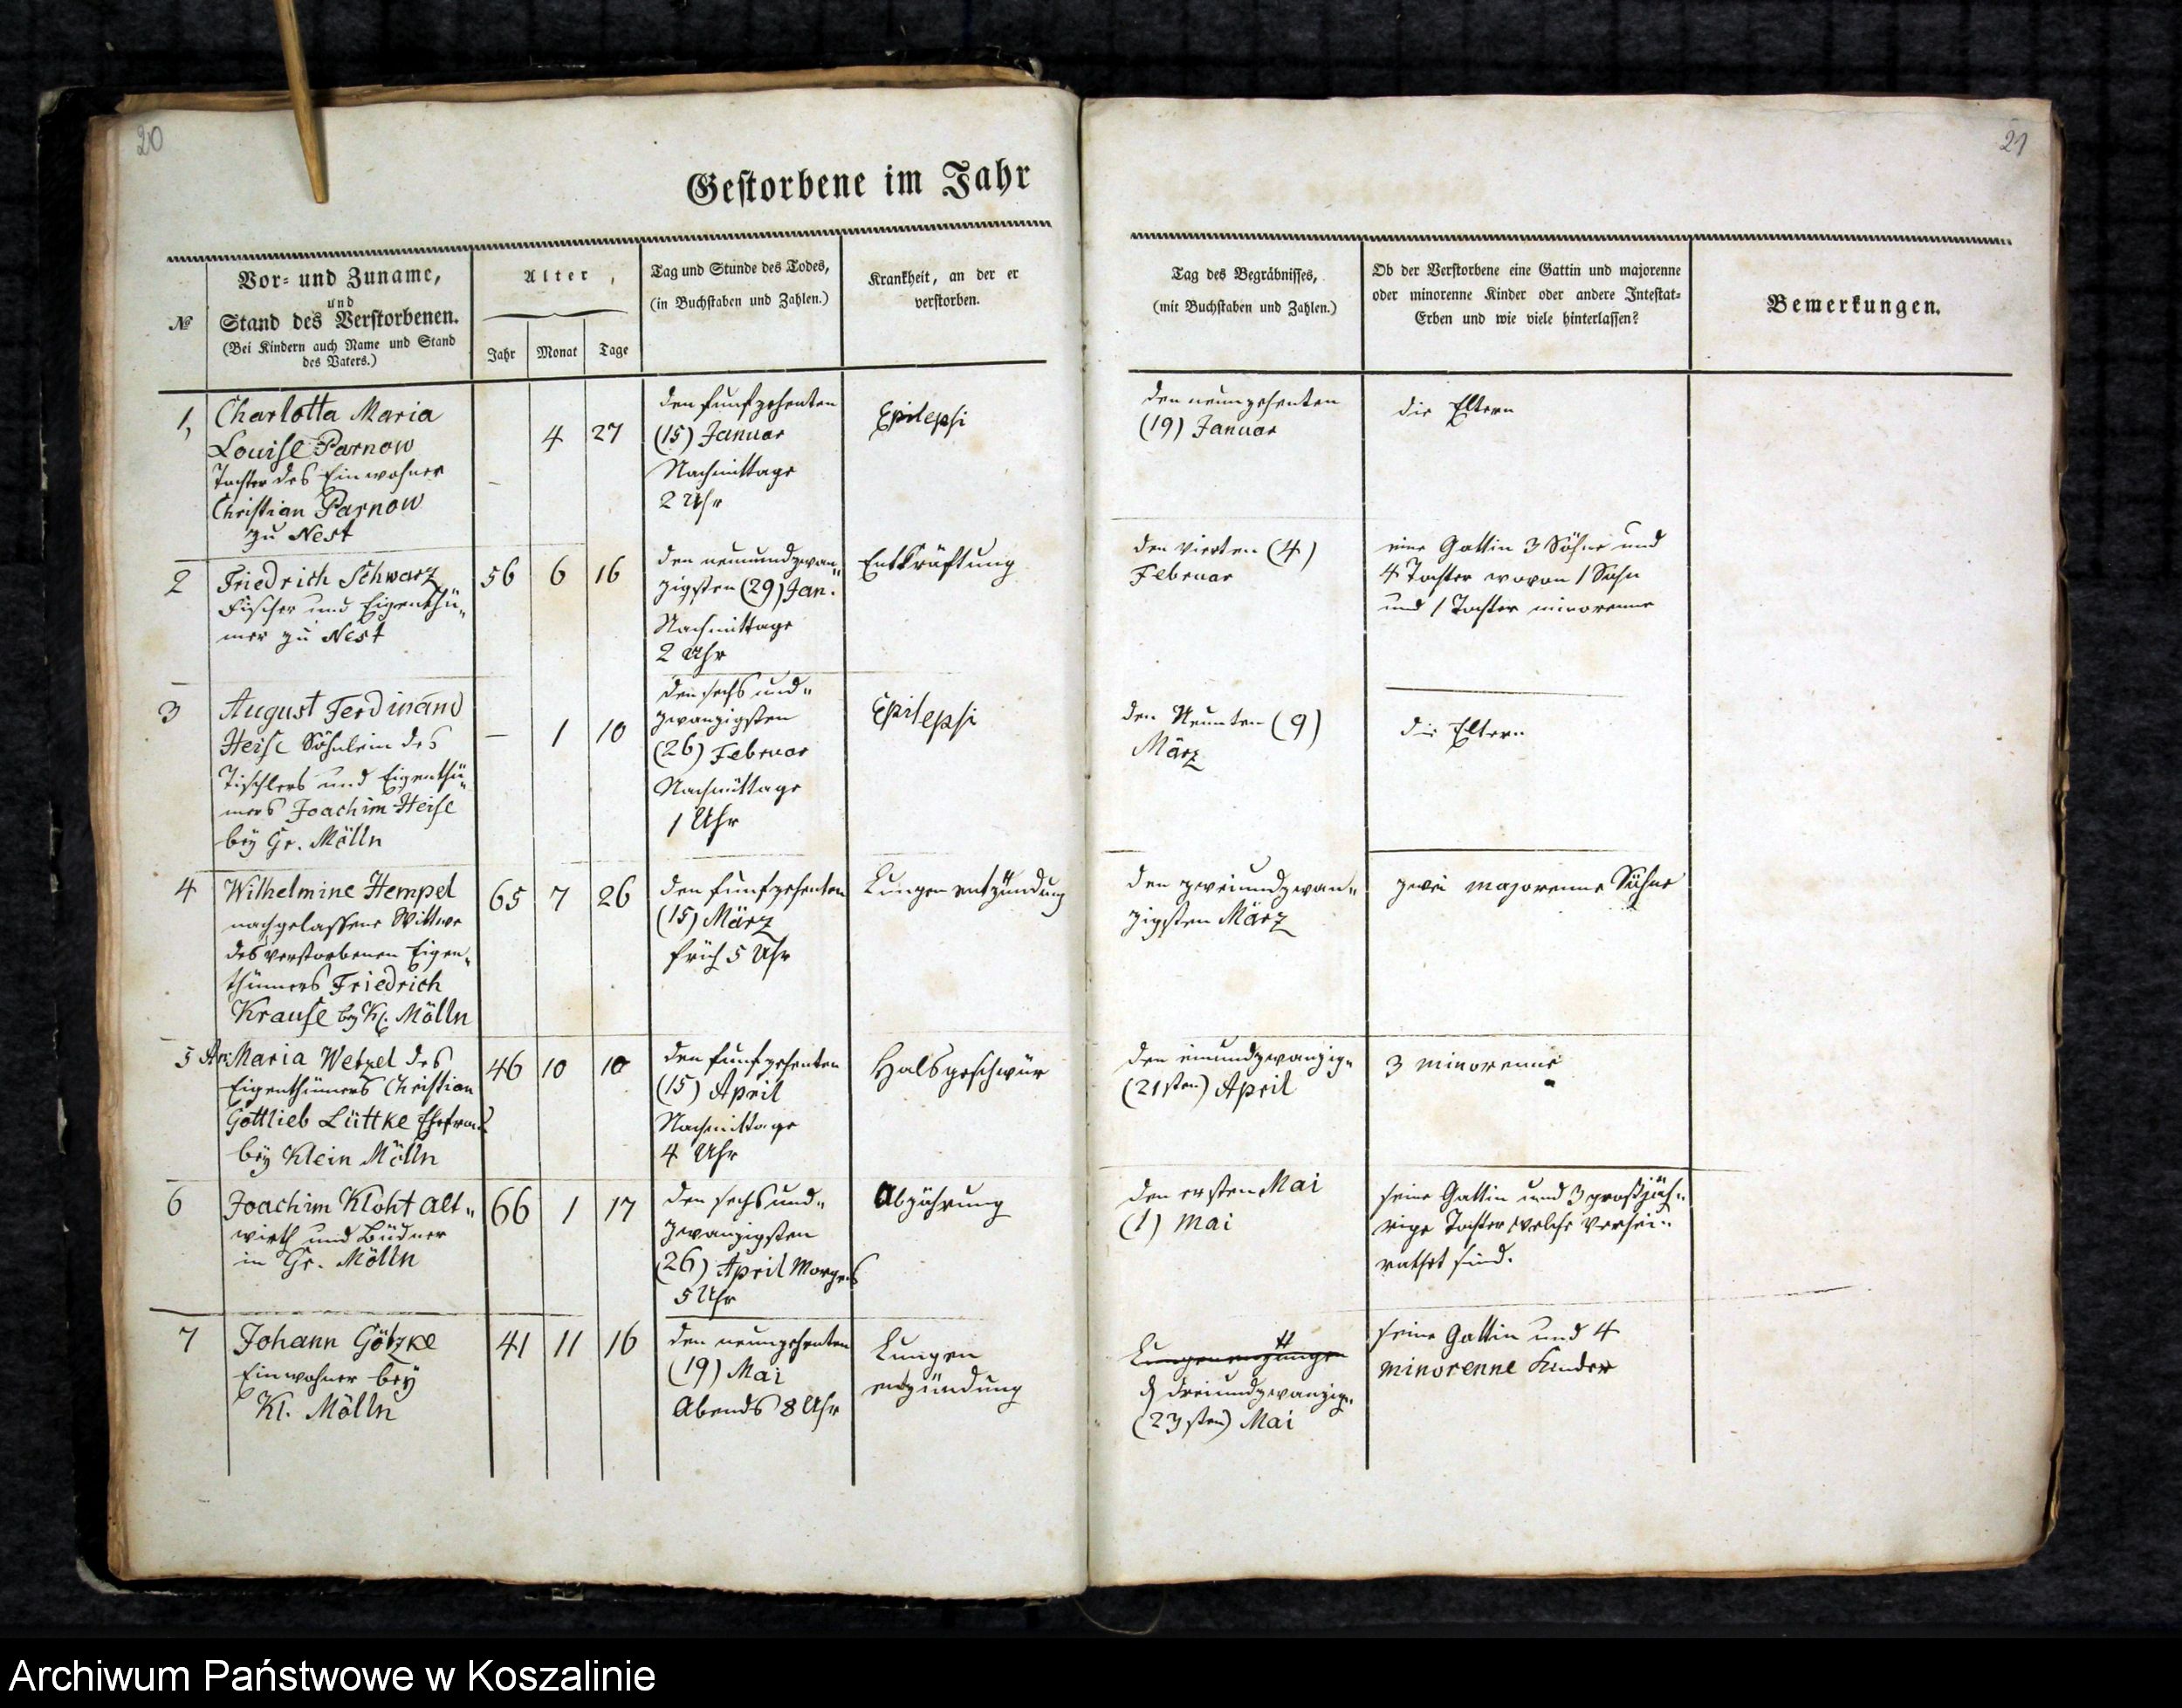 20
21
Gestorbene im Jahr
№
Vor- und Zuname,
und
Stand des Verstorbenen.
(Bei Kindern auch Name und Stand
des Vaters.)
Alter,
Jahr Monat Tage
Tag und Stunde des Todes,
(in Buchstaben und Zahlen.)
Krankheit, an der er
verstorben.
Tag des Begräbnisses,
(mit Buchstaben und Zahlen.)
Ob der Verstorbene eine Gattin und majorenne
oder minorenne Kinder oder andere Intestat-
Erben und wie viele hinterlassen?
Bemerkungen.
1,
Charlotta Maria
Louise Parnow
Tochter des Einwohner
Christian Parnow
zu Nest
4 27
den funfzehenten
(15) Januar
Nachmittage
2 Uhr
Epilepsi
den neunzehenten
(19) Januar
die Eltern
2
Friedrich Schwarz
Fischer und Eigenthü-
mer zu Nest
56 6 16
den neunundzwan-
zigsten (29) Jan.
Nachmittage
2 Uhr
Entkräftung
den vierten (4)
Februar
eine Gattin 3 Söhne und
4 Tochter wovon 1 Sohn
und 1 Tochter minorenne
3
August Ferdinand
Heise Söhnlein des
Tischlers und Eigenthü-
mers Joachim Heise
bey Gr. Mölln
– 1 10
den sechs und-
zwanzigsten
(26) Februar
Nachmittage
1 Uhr
Epilepsi
den Neunten (9)
März
die Eltern
4
Wilhelmine Hempel
nachgelassene Wittwe
des verstorbenen Eigen-
thümers Friedrich
Krause bey Kl. Mölln
65 7 26
den funfzehenten
(15) März
früh 5 Uhr
Lungenentzündung
den zweiundzwan-
zigsten März
zwei majorenne Söhne
5
An: Maria Wetzel des
Eigenthümers Christian
Gottlieb Lüttke Ehefrau
bey Klein Mölln
46 10 10
den funfzehenten
(15) April
Nachmittage
4 Uhr
Halsgeschwür
den einundzwanzig-
(21sten) April
3 minorenne
6
Joachim Kloht Alt-
wirth und Büdner
in Gr. Mölln
66 1 17
den sechs und-
zwanzigsten
(26) April Morgens
5 Uhr
Abzährung
den ersten Mai
(1) Mai
seine Gattin und 3 großjäh-
rige Tochter welche verhei-
rathet sind.
7
Johann Götzke
Einwohner bey
Kl. Mölln
41 11 16
den neunzehenten
(19) Mai
Abends 8 Uhr
Lungen
entzündung
dreiundzwanzig-
(23sten) Mai
seine Gattin und 4
minorenne Kinder
Archiwum Państwowe w Koszalinie